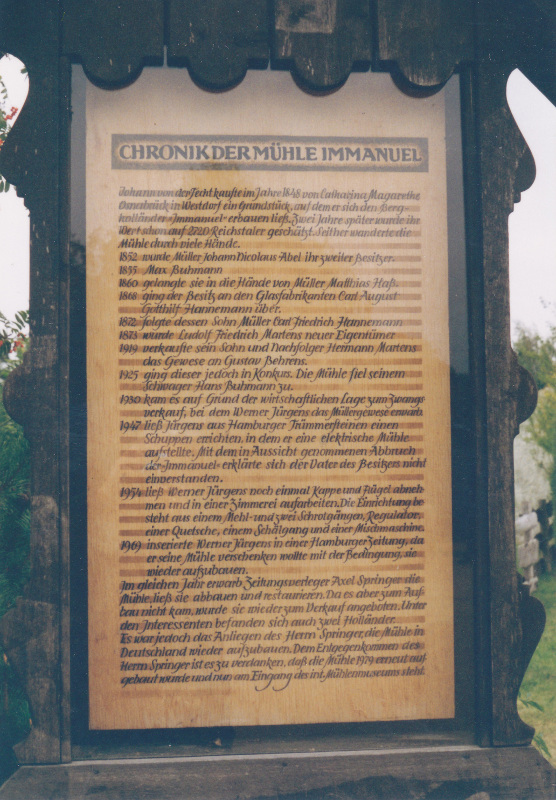 CHRONIK DER MÜHLE IMMANUEL
Johann von der Fecht kaufte im Jahre 1848 von Catharina Magarethe
in Westdorf ein Grundstück, auf dem er sich den Berg-
holländer „Immanuel“ erbauen ließ. Zwei Jahre später wurde ihr
Wert schon auf 2720 Reichstaler geschätzt. Seither wanderte die
Mühle durch viele Hände.
1852 wurde Müller Johann Nicolaus Abel ihr zweiter Besitzer.
1855 Max Buhmann
1860 gelangte sie in die Hände von Müller Matthias Haß.
1868 ging der Besitz an den Glasfabrikanten Carl August
Gotthilf Hannemann über.
1872 folgte dessen Sohn Müller Carl Friedrich Hannemann
1873 wurde Ludolf Friedrich Martens neuer Eigentümer
1919 verkaufte sein Sohn und Nachfolger Hermann Martens
das Gewese an Gustav Behrens.
1925 ging dieser jedoch in Konkurs. Die Mühle fiel seinem
Schwager Hans Buhmann zu.
1930 kam es auf Grund der wirtschaftlichen Lage zum Zwangs
verkauf, bei dem Werner Jürgens das Müllergewese erwarb.
1947 ließ Jürgens aus Hamburger Trümmersteinen einen
Schuppen errichten, in dem er eine elektrische Mühle
aufstellte. Mit dem in Aussicht genommenen Abbruch
der „Immanuel“ erklärte sich der Vater des Besitzers nicht
einverstanden.
1954 ließ Werner Jürgens noch einmal Kappe und Flügel abneh-
men und in einer Zimmerei aufarbeiten. Die Einrichtung be
steht aus einem Mehl- und zwei Schrotgängen, Regulator,
einer Quetsche, einem Schälgang und einer Mischmaschine.
1969 inserierte Werner Jürgens in einer Hamburger Zeitung, da
er seine Mühle verschenken wollte mit der Bedingung, sie
wieder aufzubauen.
Im gleichen Jahr erwarb Zeitungsverleger Axel Springer die
Mühle, ließ sie abbauen und restaurieren. Da es aber zum Auf-
bau nicht kam, wurde sie wieder zum Verkauf angeboten. Unter
den Interessenten befanden sich auch zwei Holländer.
Es war jedoch das Anliegen des Herrn Springer, die Mühle in
Deutschland wieder aufzubauen. Dem Entgegenkommen des
Herrn Springer ist es zu verdanken, daß die Mühle 1979 erneut auf
gebaut wurde und nun am Eingang des int. Mühlenmuseums steht.